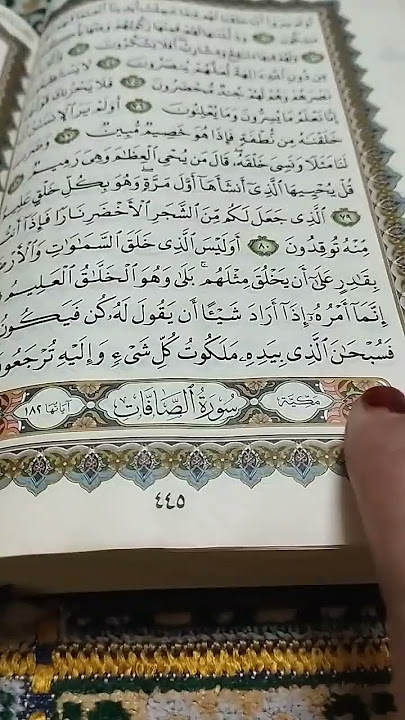 وَلَهُمْ فِيهَا مَنَٰفِعُ وَمَشَارِبُ أَفَلَا يَشْكُرُونَ
مِن دُونِ ٱللَّهِ ءَالِهَةً لَّعَلَّهُمْ يُنصَرُونَ ٧٤ لَا يَسْتَطِيعُونَ
نَصْرَهُمْ وَهُمْ لَهُمْ جُندٌ مُّحْضَرُونَ ٧٥ فَلَا يَحْزُنكَ
إِنَّا نَعْلَمُ مَا يُسِرُّونَ وَمَا يُعْلِنُونَ ٧٦ أَوَلَمْ يَرَ ٱلْإِنسَٰنُ
خَلَقْنَٰهُ مِن نُّطْفَةٍ فَإِذَا هُوَ خَصِيمٌ مُّبِينٌ ٧٧ وَضَرَبَ
لَنَا مَثَلًا وَنَسِيَ خَلْقَهُۥ قَالَ مَن يُحْيِ ٱلْعِظَٰمَ وَهِيَ رَمِيمٌ
قُلْ يُحْيِيهَا ٱلَّذِىٓ أَنشَأَهَآ أَوَّلَ مَرَّةٍ وَهُوَ بِكُلِّ خَلْقٍ عَلِيمٌ
٧٩ ٱلَّذِى جَعَلَ لَكُم مِّنَ ٱلشَّجَرِ ٱلْأَخْضَرِ نَارًا فَإِذَآ أَنتُم
مِّنْهُ تُوقِدُونَ ٨٠ أَوَلَيْسَ ٱلَّذِى خَلَقَ ٱلسَّمَٰوَٰتِ وَٱلْأَرْضَ
بِقَٰدِرٍ عَلَىٰٓ أَن يَخْلُقَ مِثْلَهُم بَلَىٰ وَهُوَ ٱلْخَلَّٰقُ ٱلْعَلِيمُ
إِنَّمَآ أَمْرُهُۥٓ إِذَآ أَرَادَ شَيْـًٔا أَن يَقُولَ لَهُۥ كُن فَيَكُونُ
فَسُبْحَٰنَ ٱلَّذِى بِيَدِهِۦ مَلَكُوتُ كُلِّ شَىْءٍ وَإِلَيْهِ تُرْجَعُونَ
مَكِّيَّة سُورَةُ ٱلصَّافَّاتِ آيَاتُهَا ١٨٢
٤٤٥